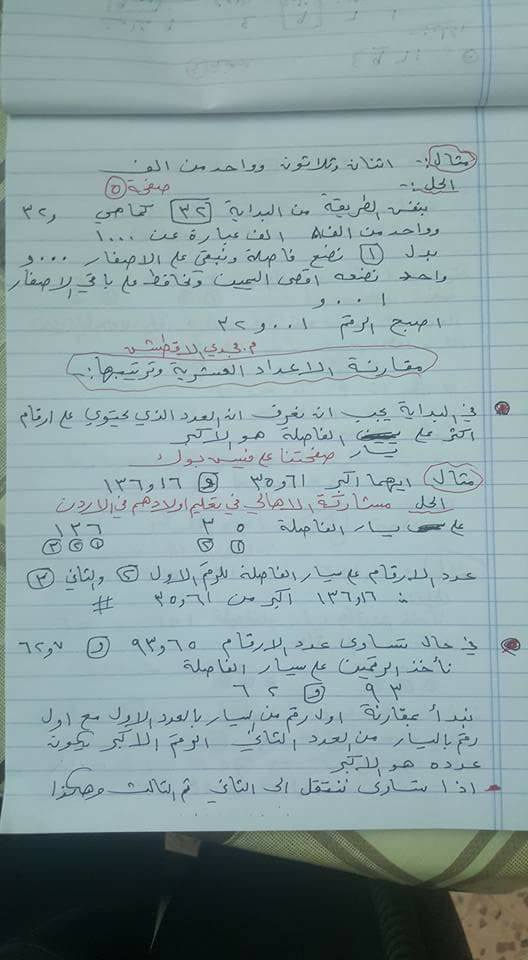 مثال:- اثنان وثلاثون وواحد من الف
الحل:- صفحة ٥
بنفس الطريقة من البداية ٣٢ كما هي ٣٢و
وواحد من الف الف عبارة عن ١٠٠٠
بدل ١ نضع فاصلة ونبقي على الاصفار ٠٠٠و
واحد نضعه اقصى اليمين ونحافظ على باقي الاصفار
٠٠١و
اصبح الرقم ٣٢و٠٠١
م. مجدي الاقطش
مقارنة الاعداد العشرية وترتيبها:-
في البداية يجب ان نعرف ان العدد الذي يحتوي على ارقام
اكثر على يسار الفاصلة هو الاكبر
صفحتنا على فيس بوك
مثال ايهما اكبر ٣٥و٦١ و ١٣٦و١٦
الحل مشاركة الاهالي في تعليم اولادهم في الاردن
على يسار الفاصلة ٣٥ ١٣٦
١ ٢ ١ ٢ ٣
عدد الارقام على يسار الفاصلة للرقم الاول ٢ والثاني ٣
∴ ١٣٦و١٦ اكبر من ٣٥و٦١ #
في حال تساوى عدد الارقام ٩٣و٦٥ و ٦٢و٧
نأخذ الرقمين على يسار الفاصلة
٩٣ و ٦٢
نبدأ بمقارنة اول رقم من اليسار بالعدد الاول مع اول
رقم باليسار من العدد الثاني الرقم الاكبر يكون
عدده هو الاكبر
اذا تساوى ننتقل الى الثاني ثم الثالث وهكذا